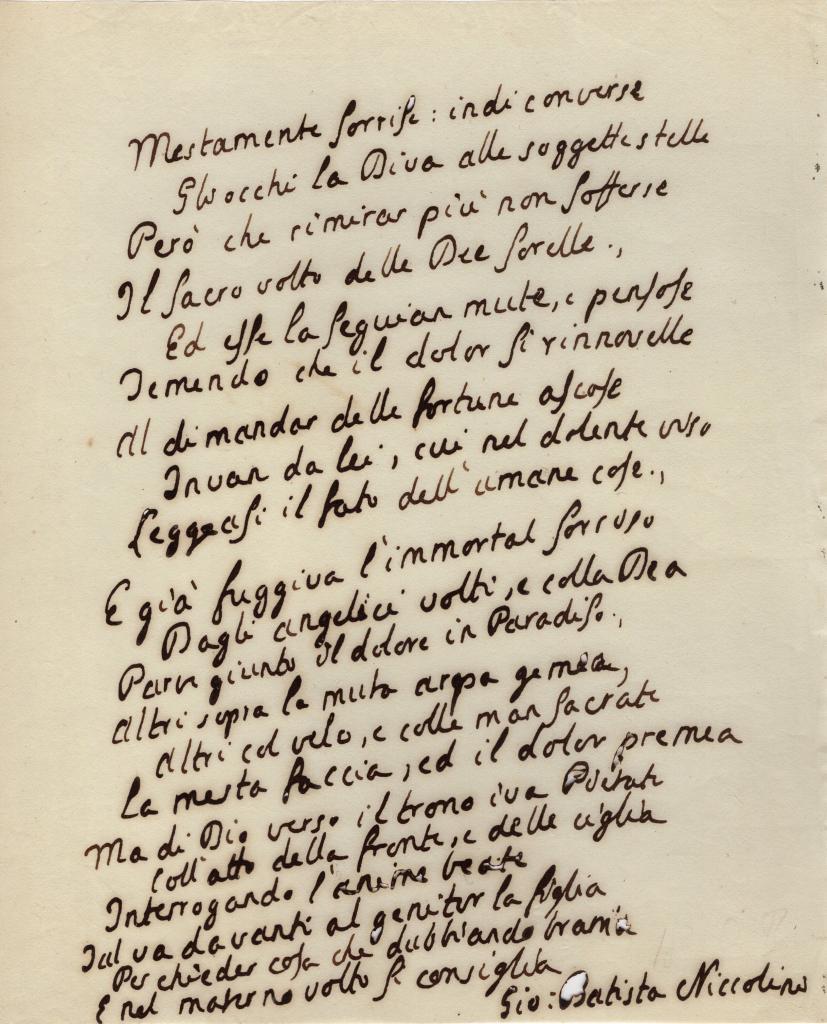 Mestamente sorrise: indi converse
Gli occhi la Diva alle soggette stelle
Però che rimirar più non sofferse
Il sacro volto delle Dee sorelle.,
Ed esse la seguian mute, e pensose
Temendo che il dolor si rinnovelle
Al dimandar delle fortune ascose
Invan da lei, cui nel dolente viso
Leggeasi il fato dell'umane cose.,
E già fuggiva l'immortal sorriso
Dagli angelici volti, e colla Dea
Parve giunto il dolore in Paradiso.,
Altri sopra la muta arpa gemea,
Altri col velo, e colle man sacrate
La mesta faccia, ed il dolor premea
Ma di Dio verso il trono iva Pietate
Coll'atto della fronte, e delle ciglia
Interrogando l'anime beate
Tal va davanti al genitor la figlia
Per chieder cosa che dubbiando brama
E nel materno volto si consiglia
Gio: Batista Niccolini